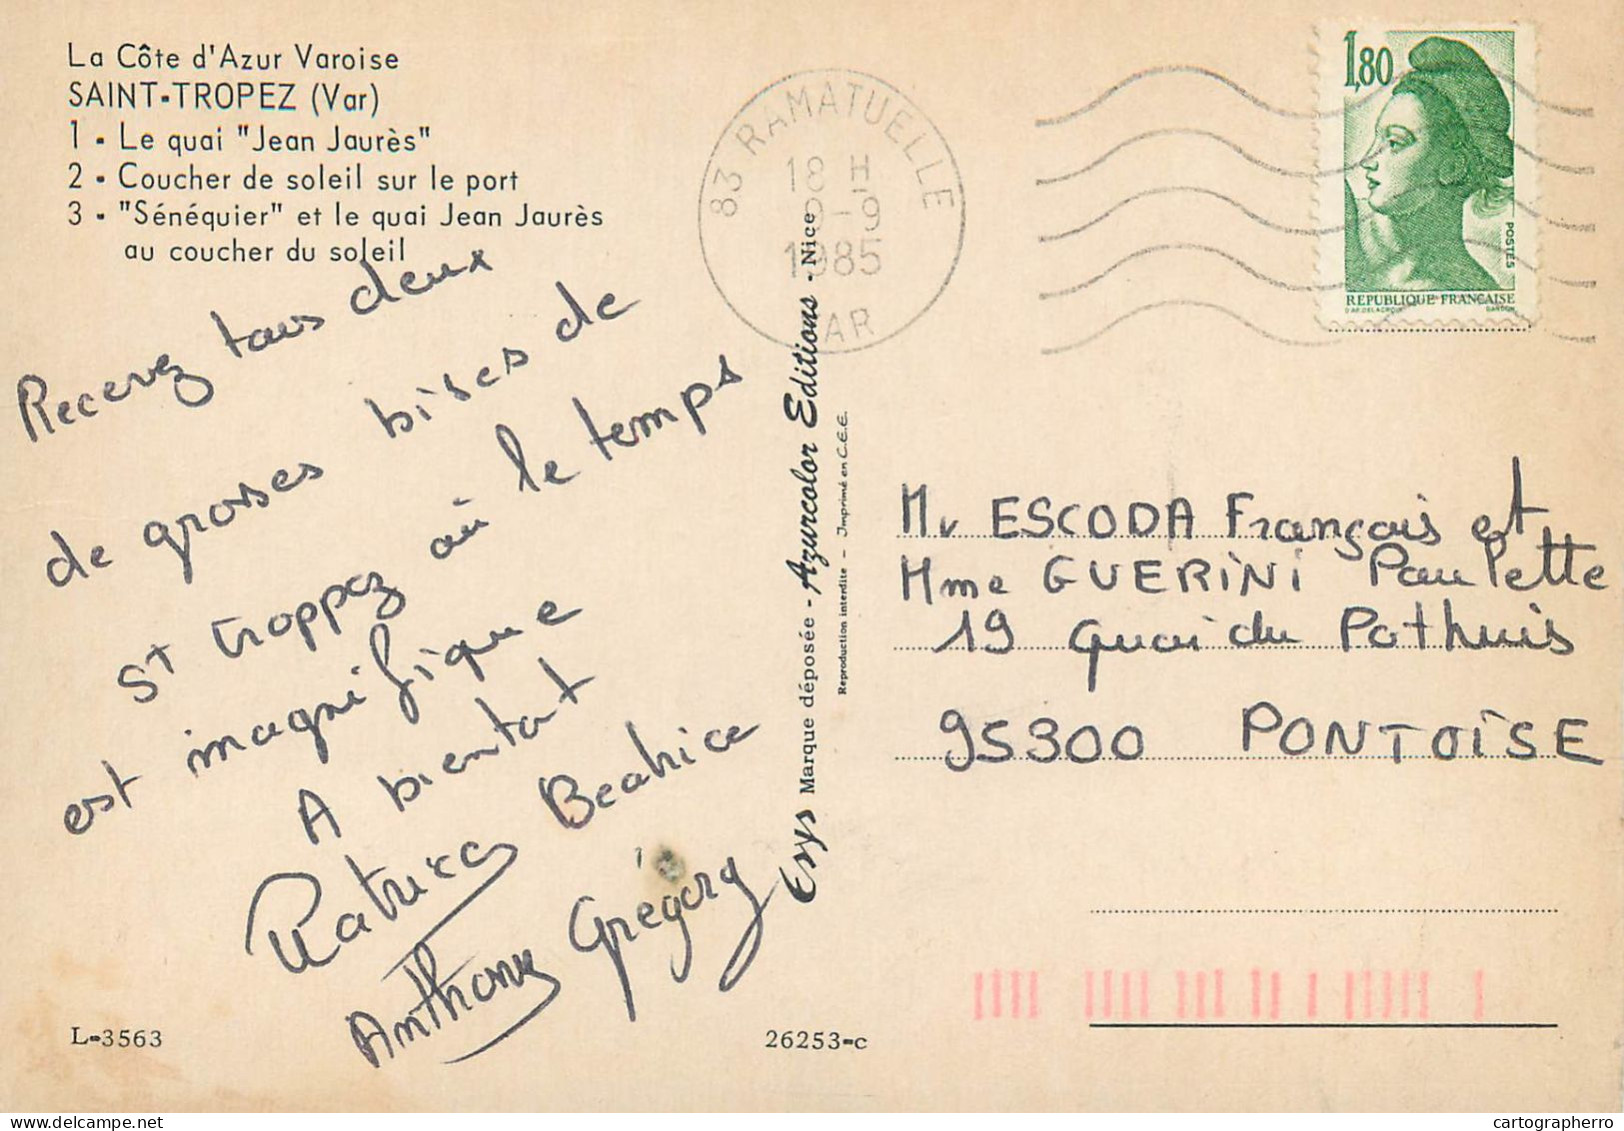 La Côte d'Azur Varoise
SAINT-TROPEZ (Var)
1 - Le quai "Jean Jaurès"
2 - Coucher de soleil sur le port
3 - "Sénéquier" et le quai Jean Jaurès
au coucher du soleil
Recevez tous deux
de grosses bises de
St troppez où le temps
est magnifique
A bientot
Patrice Beatrice
Anthony Grégory
L-3563
26253-c
Esys Marque déposée - Azurcolor Editions - Nice
Reproduction interdite - Imprimé en C.E.E.
83 RAMATUELLE
18 H
9-9
1985
VAR
1,80
POSTES
REPUBLIQUE FRANÇAISE
D'AP. DELACROIX GANDON
Mr ESCODA Français et
Mme GUERINI Paulette
19 Quai du Pothuis
95300 PONTOISE
cartographerro